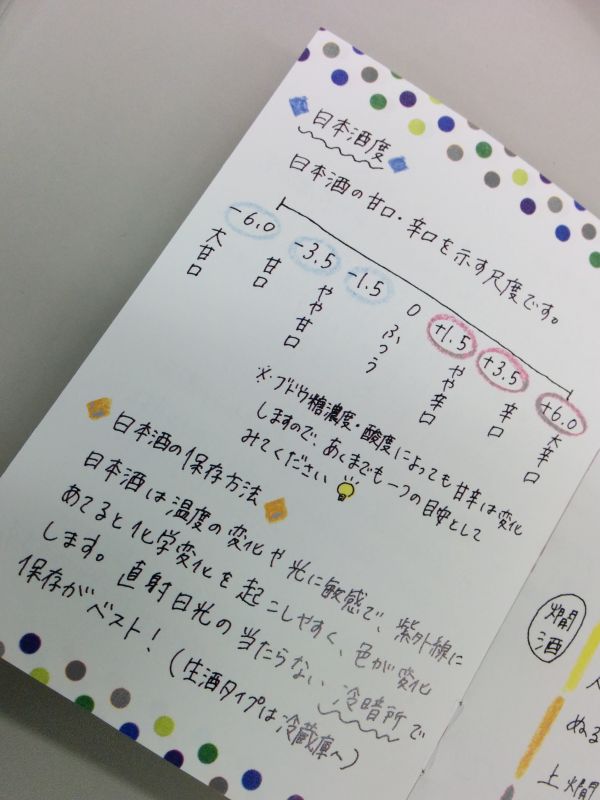 日本酒度
日本酒の甘口・辛口を示す尺度です。
-6.0 -3.5 -1.5 0 +1.5 +3.5 +6.0
大甘口 甘口 やや甘口 ふつう やや辛口 辛口 大辛口
※・ブドウ糖濃度・酸度によっても甘辛は変化
しますので、あくまでも一つの目安として
みてください
日本酒の保存方法
日本酒は温度の変化や光に敏感で、紫外線に
あてると化学変化を起こしやすく、色が変化
します。直射日光の当たらない冷暗所で
保存がベスト!(生酒タイプは冷蔵庫へ)
燗酒
ぬる
上燗